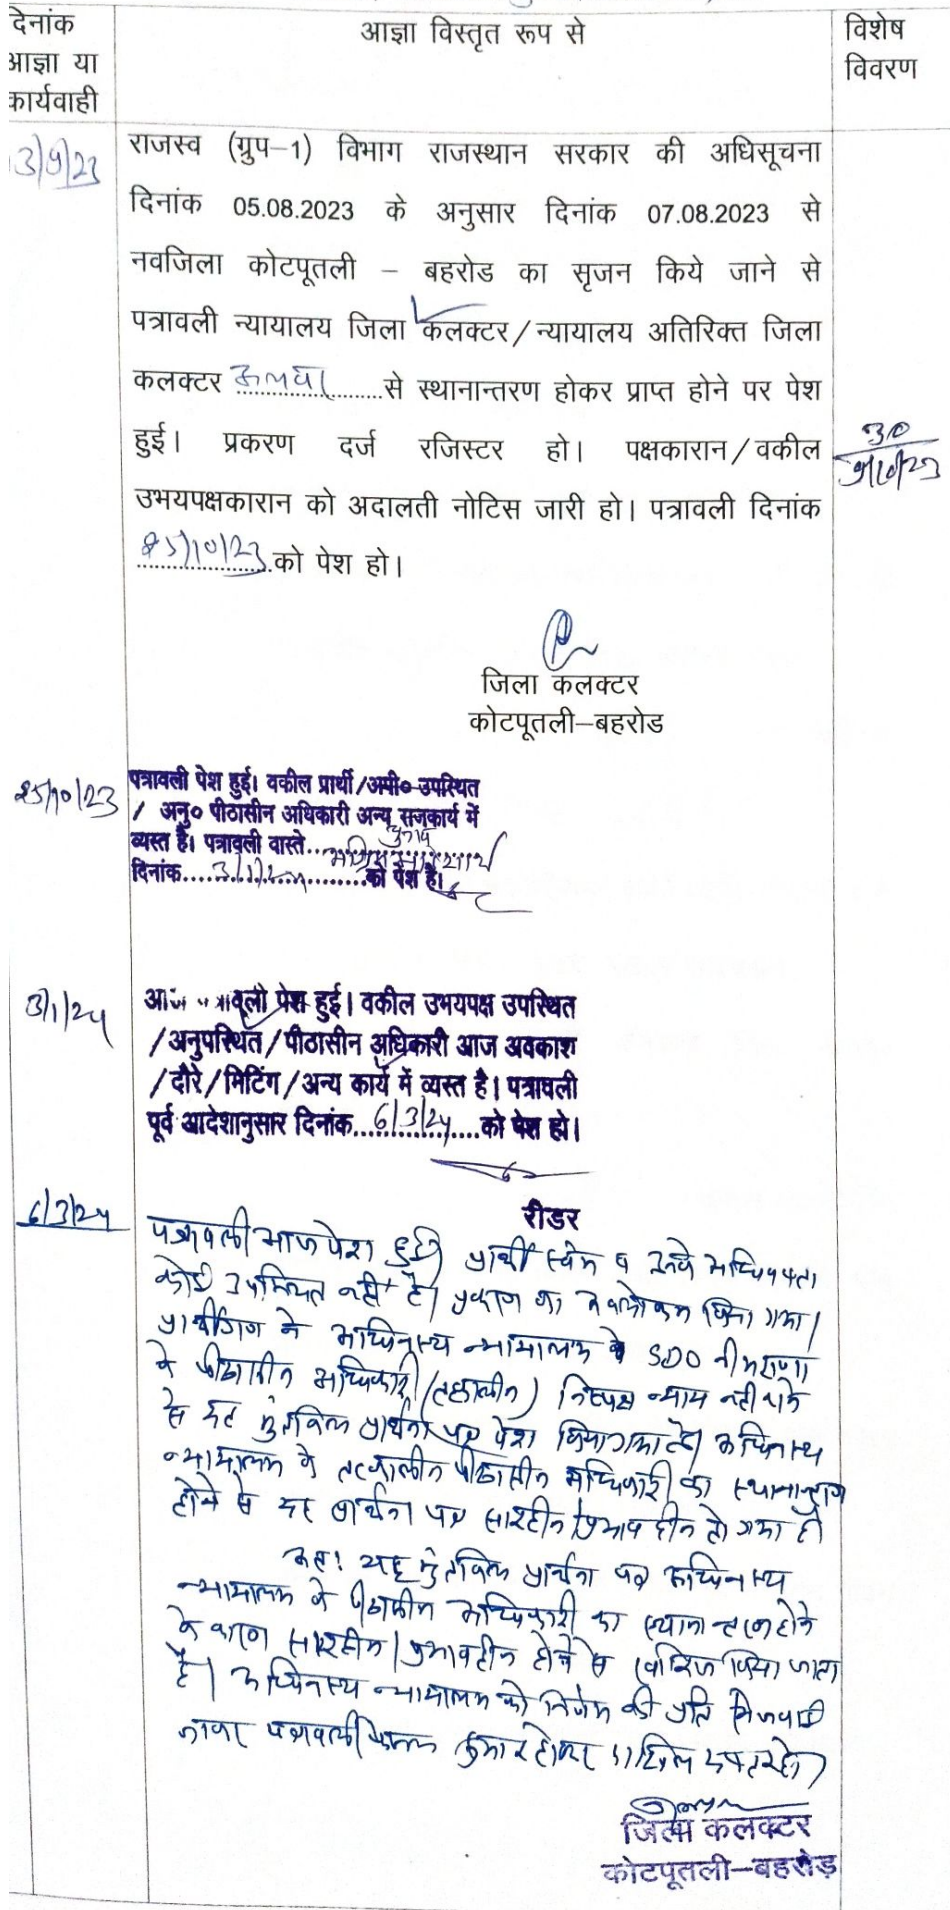 देनांक
आज्ञा या
कार्यवाही
आज्ञा विस्तृत रूप से
विशेष
विवरण
राजस्व (ग्रुप–1) विभाग राजस्थान सरकार की अधिसूचना
दिनांक 05.08.2023 के अनुसार दिनांक 07.08.2023 से
नवजिला कोटपूतली – बहरोड का सृजन किये जाने से
पत्रावली न्यायालय जिला कलक्टर/न्यायालय अतिरिक्त जिला
कलक्टर अलवर से स्थानान्तरण होकर प्राप्त होने पर पेश
हुई। प्रकरण दर्ज रजिस्टर हो। पक्षकारान/वकील
उभयपक्षकारान को अदालती नोटिस जारी हो। पत्रावली दिनांक
25/10/23 को पेश हो।
30
जिला कलक्टर
कोटपूतली–बहरोड
25/10/23
पत्रावली पेश हुई। वकील प्रार्थी/अपी० उपस्थित
/ अनु० पीठासीन अधिकारी अन्य राजकार्य में
व्यस्त है। पत्रावली वास्ते
दिनांक 3/1/24 को पेश है।
3/1/24
आज पत्रावली पेश हुई। वकील उभयपक्ष उपस्थित
/अनुपस्थित/पीठासीन अधिकारी आज अवकाश
/दौरे/मिटिंग/अन्य कार्य में व्यस्त है। पत्रावली
पूर्व आदेशानुसार दिनांक 6/3/24 को पेश हो।
रीडर
6/3/24
पत्रावली आज पेश हुई प्रार्थी स्वयं व उनके अधिवक्ता
कोई उपस्थित नहीं है। प्रकरण का अवलोकन किया गया।
प्रार्थीगण ने अधिनस्थ न्यायालय SDO नीमराणा
के पीठासीन अधिकारी (तत्कालीन) निष्पक्ष न्याय नहीं
से मुंतकिल प्रार्थना पत्र पेश किया गया है। अधिनस्थ
न्यायालय के तत्कालीन पीठासीन अधिकारी का स्थानान्तरण
होने से यह प्रार्थना पत्र सारहीन/प्रभावहीन हो गया है।
अतः यह मुंतकिल प्रार्थना पत्र अधिनस्थ
न्यायालय के पीठासीन अधिकारी का स्थानान्तरण होने
के कारण सारहीन/प्रभावहीन होने से खारिज किया जाता
है। अधिनस्थ न्यायालय को निर्णय की प्रति भिजवाई
जाकर पत्रावली शुमार होकर दाखिल दफ्तर हो।
जिला कलक्टर
कोटपूतली–बहरोड़